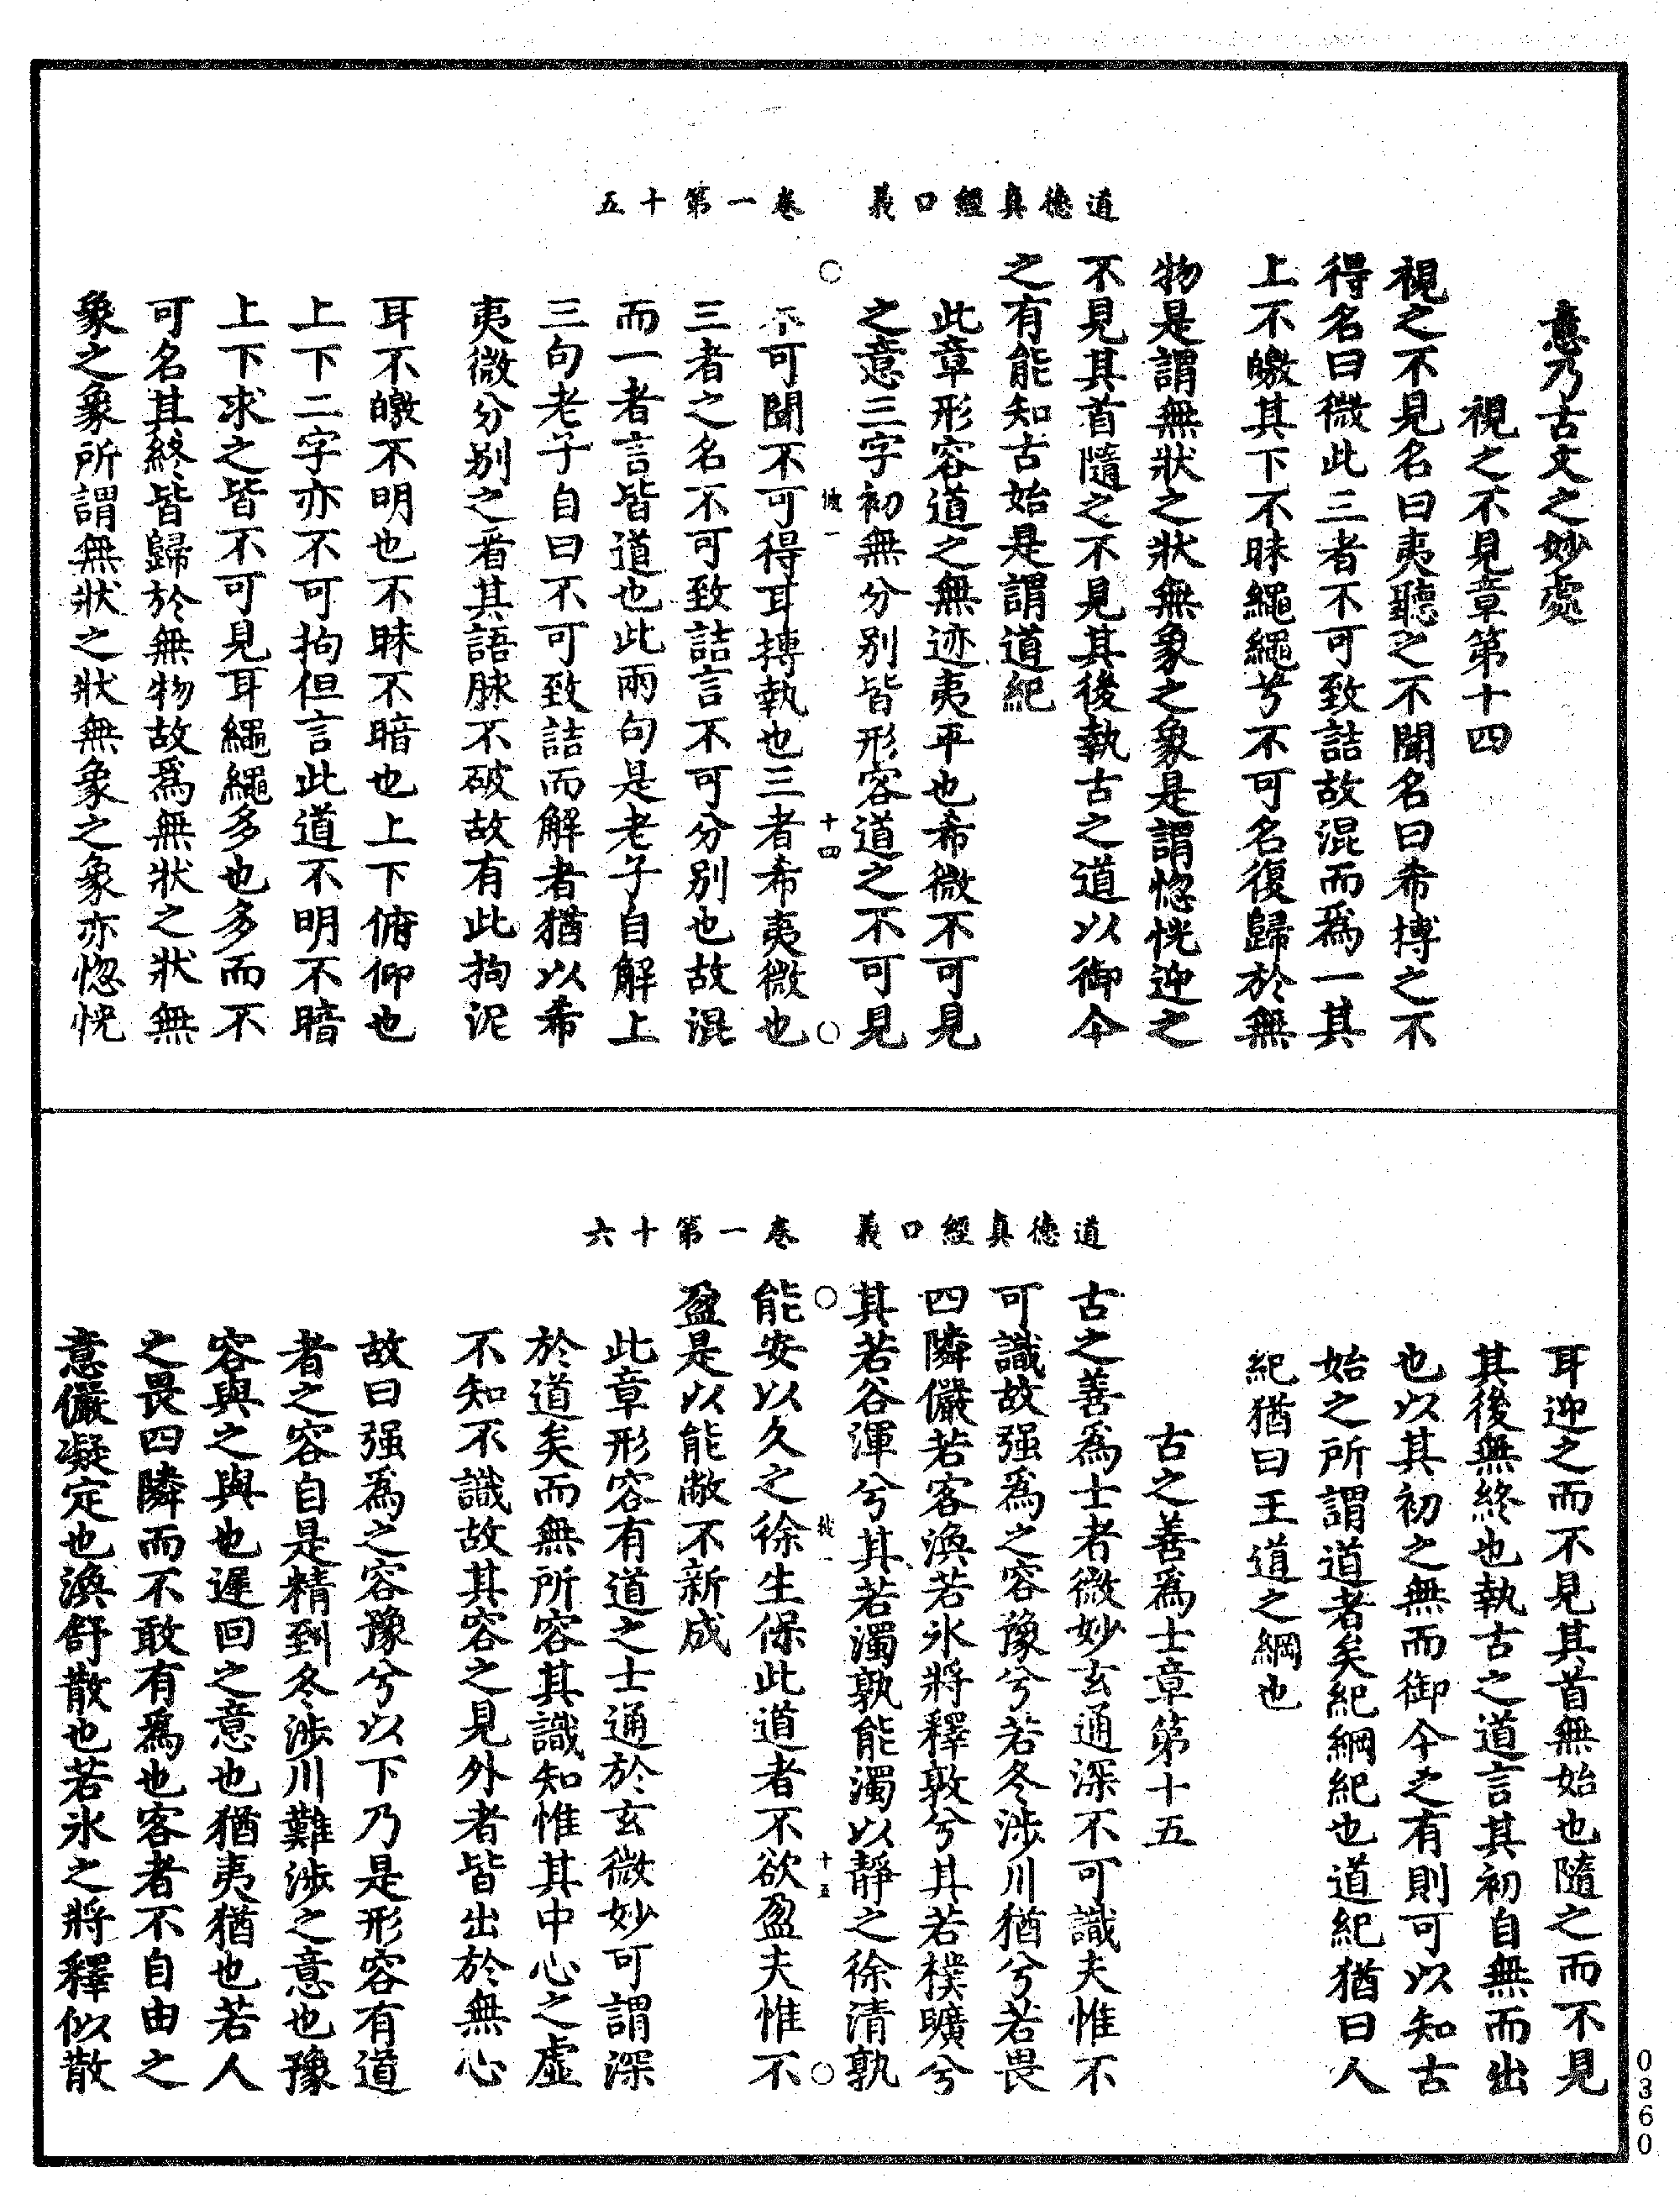 道德真經口義　卷一第十五
意乃古文之妙處
視之不見章第十四
視之不見名曰夷聽之不聞名曰希搏之不
得名曰微此三者不可致詰故混而爲一其
上不皦其下不昧繩繩兮不可名復歸於無
物是謂無狀之狀無象之象是謂惚恍迎之
不見其首隨之不見其後執古之道以御今
之有能知古始是謂道紀
此章形容道之無迹夷平也希微不可見
之意三字初無分别皆形容道之不可見
十四
不可聞不可得耳摶執也三者希夷微也
三者之名不可致詰言不可分别也故混
而一者言皆道也此兩句是老子自解上
三句老子自曰不可致詰而解者猶以希
夷微分别之看其語脉不破故有此拘泥
耳不皦不明也不昧不暗也上下俯仰也
上下二字亦不可拘但言此道不明不暗
上下求之皆不可見耳繩繩多也多而不
可名其終皆歸於無物故爲無狀之狀無
象之象所謂無狀之狀無象之象亦惚恍
道德真經口義　卷一第十六
耳迎之而不見其首無始也隨之而不見
其後無終也執古之道言其初自無而出
也以其初之無而御今之有則可以知古
始之所謂道者矣紀綱紀也道紀猶曰人
紀猶曰王道之綱也
古之善爲士章第十五
古之善爲士者微妙玄通深不可識夫惟不
可識故强爲之容豫兮若冬涉川猶兮若畏
四隣儼若客渙若氷將釋敦兮其若樸曠兮
其若谷渾兮其若濁孰能濁以靜之徐清孰
十五
能安以久之徐生保此道者不欲盈夫惟不
盈是以能敝不新成
此章形容有道之士通於玄微妙可謂深
於道矣而無所容其識知惟其中心之虚
不知不識故其容之見外者皆出於無心
故曰强爲之容豫兮以下乃是形容有道
者之容自是精到冬涉川難涉之意也豫
容與之與也遲回之意也猶夷猶也若人
之畏四隣而不敢有爲也客者不自由之
意儼凝定也渙舒散也若氷之將釋似散
0360